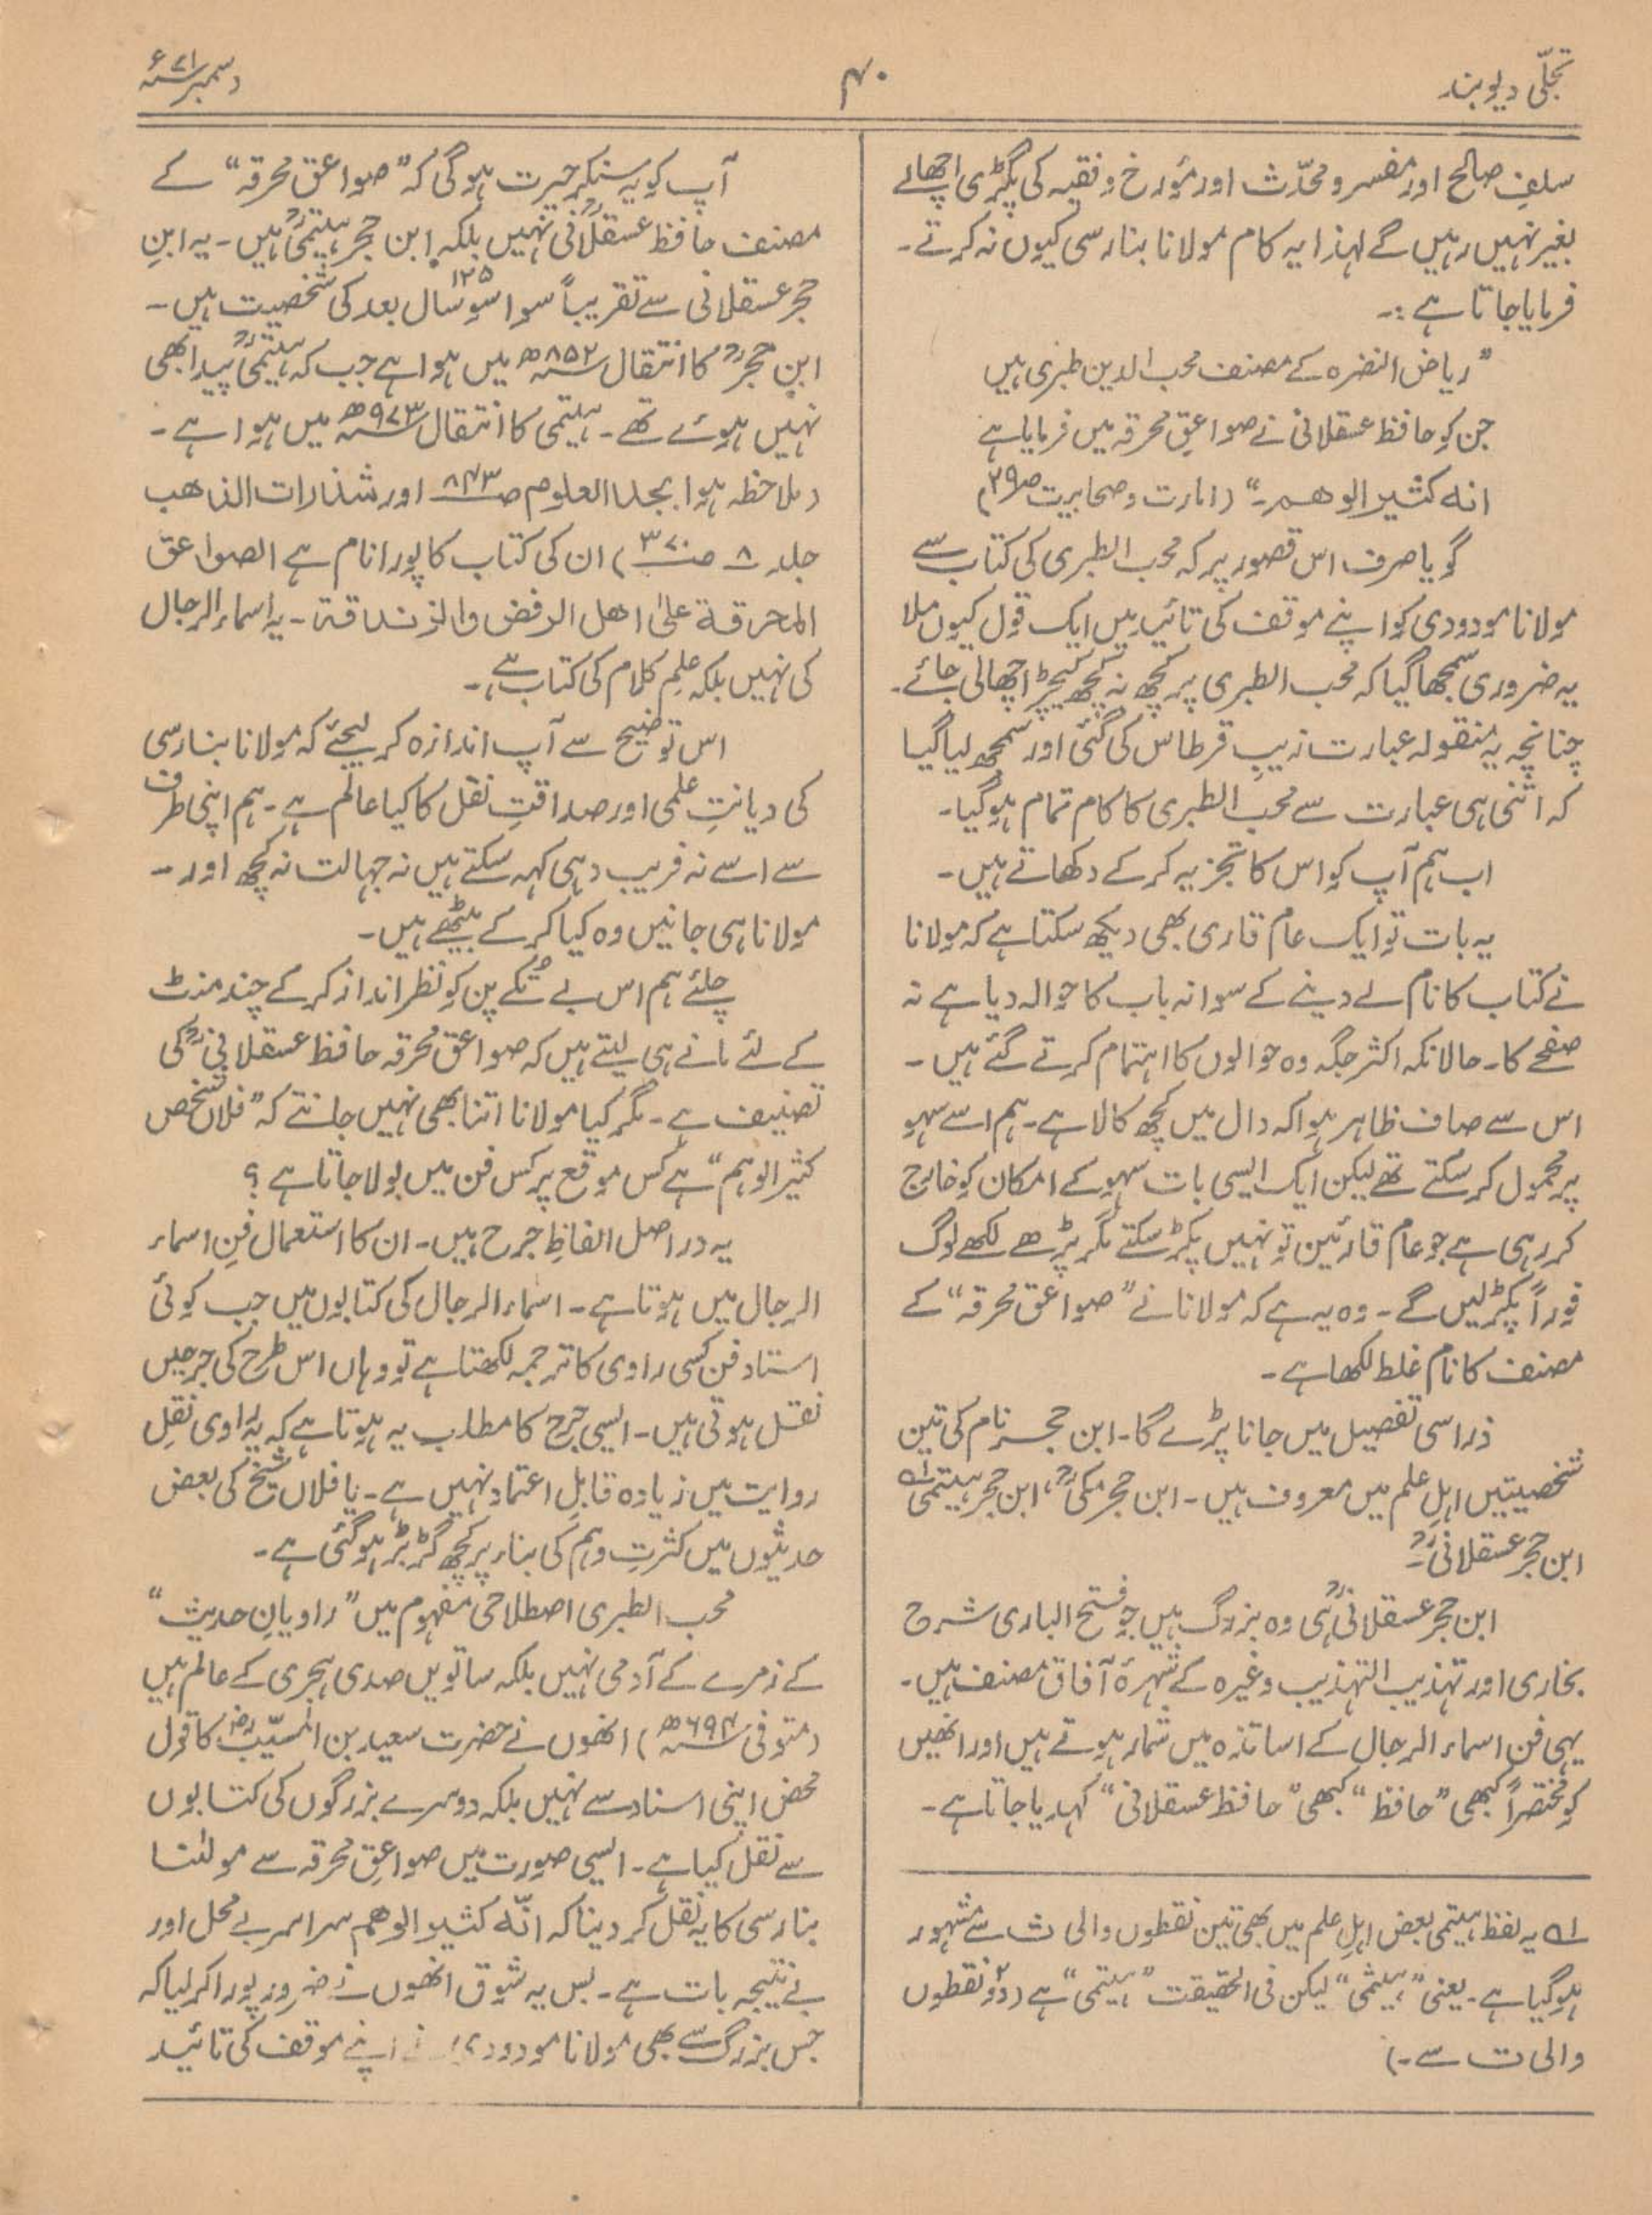 تجلّی دیوبند
۴۰
دسمبر ۷۱ء
سلفِ صالح اور مفسر و محدّث اور مؤرخ و فقیہ کی پگڑی اچھالے
بغیر نہیں رہیں گے لہٰذا یہ کام مولانا بنارسی کیوں نہ کرتے۔
فرمایا جاتا ہے:۔
”ریاض النضرہ کے مصنف محب الدین طبری ہیں
جن کو حافظ عسقلانی نے صواعقِ محرقہ میں فرمایا ہے
انہ کثیر الوھم۔“ (امارت و صحابیت ص۳۹)
گویا صرف اس قصور پر کہ محب الطبری کی کتاب سے
مولانا مودودی کو اپنے موقف کی تائید میں ایک قول کیوں ملا
یہ ضروری سمجھا گیا کہ محب الطبری پر کچھ نہ کچھ کیچڑ اچھالی جائے۔
چنانچہ یہ منقولہ عبارت زیبِ قرطاس کی گئی اور سمجھ لیا گیا
کہ اتنی ہی عبارت سے محب الطبری کا کام تمام ہو گیا۔
اب ہم آپ کو اس کا تجزیہ کر کے دکھاتے ہیں۔
یہ بات تو ایک عام قاری بھی دیکھ سکتا ہے کہ مولانا
نے کتاب کا نام لے دینے کے سوا نہ باب کا حوالہ دیا ہے نہ
صفحے کا۔ حالانکہ اکثر جگہ وہ حوالوں کا اہتمام کرتے گئے ہیں۔
اس سے صاف ظاہر ہوا کہ دال میں کچھ کالا ہے۔ ہم اسے سہو
پر محمول کر سکتے تھے لیکن ایک ایسی بات سہو کے امکان کو خارج
کر رہی ہے جو عام قارئین تو نہیں پکڑ سکتے مگر پڑھے لکھے لوگ
فوراً پکڑ لیں گے۔ وہ یہ ہے کہ مولانا نے ”صواعق محرقہ“ کے
مصنف کا نام غلط لکھا ہے۔
ذرا سی تفصیل میں جانا پڑے گا۔ ابن حجر نام کی تین
شخصیتیں اہلِ علم میں معروف ہیں۔ ابن حجر مکیؒ، ابن حجر ہیتمی لہ
ابن حجر عسقلانیؒ۔
ابن حجر عسقلانیؒ ہی وہ بزرگ ہیں جو فتح الباری شرح
بخاری اور تہذیب التہذیب وغیرہ کے شہرۂ آفاق مصنف ہیں۔
یہی فن اسماء الرجال کے اساتذہ میں شمار ہوتے ہیں اور انھیں
کو مختصراً کبھی ”حافظ“ کبھی ”حافظ عسقلانی“ کہدیا جاتا ہے۔
لہ یہ لفظ ہیتمی بعض اہلِ علم میں بھی تین نقطوں والی ث سے مشہور
ہو گیا ہے۔ یعنی ”ہیثمی“ لیکن فی الحقیقت ”ہیتمی“ ہے (دو۲ نقطوں
والی ت سے۔)
آپ کو یہ سنکر حیرت ہوگی کہ ”صواعق محرقہ“ کے
مصنف حافظ عسقلانیؒ نہیں بلکہ ابن حجر ہیتمیؒ ہیں۔ یہ ابنِ
حجر عسقلانی سے تقریباً سوا سو ۱۲۵ سال بعد کی شخصیت ہیں۔
ابن حجرؒ کا انتقال ۸۵۲ھ میں ہوا ہے جب کہ ہیتمیؒ پیدا بھی
نہیں ہوئے تھے۔ ہیتمی کا انتقال ۹۷۳ھ میں ہوا ہے۔
(ملاحظہ ہو ابجد العلوم ص۸۴۳ اور شذارات الذاھب
جلد ۸ ص۳۷۰) ان کی کتاب کا پورا نام ہے الصواعق
المحرقۃ علیٰ اھل الرفض والزندقۃ۔ یہ اسماء الرجال
کی نہیں بلکہ علمِ کلام کی کتاب ہے۔
اس توضیح سے آپ اندازہ کر لیجئے کہ مولانا بنارسی
کی دیانتِ علمی اور صداقتِ نقل کا کیا عالم ہے۔ ہم اپنی طرف
سے اسے نہ فریب دہی کہہ سکتے ہیں نہ جہالت نہ کچھ اور۔
مولانا ہی جانیں وہ کیا کر کے بیٹھے ہیں۔
چلئے ہم اس بے تُکے پن کو نظر انداز کر کے چند منٹ
کے لئے مانے ہی لیتے ہیں کہ صواعق محرقہ حافظ عسقلانیؒ کی
تصنیف ہے۔ مگر کیا مولانا اتنا بھی نہیں جانتے کہ ”فلاں شخص
کثیر الوہم“ ہے کس موقع پر کس فن میں بولا جاتا ہے؟
یہ دراصل الفاظِ جرح ہیں۔ ان کا استعمال فنِ اسماء
الرجال میں ہوتا ہے۔ اسماء الرجال کی کتابوں میں جب کوئی
استاد فن کسی راوی کا ترجمہ لکھتا ہے تو وہاں اس طرح کی جرحیں
نقل ہوتی ہیں۔ ایسی جرح کا مطلب یہ ہوتا ہے کہ یہ راوی نقلِ
روایت میں زیادہ قابلِ اعتماد نہیں ہے۔ یا فلاں شیخ کی بعض
حدیثوں میں کثرتِ وہم کی بناء پر کچھ گڑبڑ ہو گئی ہے۔
محب الطبری اصطلاحی مفہوم میں ”راویانِ حدیث“
کے زمرے کے آدمی نہیں بلکہ ساتویں صدی ہجری کے عالم ہیں
(متوفی ۶۹۴ھ) انھوں نے حضرت سعید بن المسیّبؓ کا قول
محض اپنی اسناد سے نہیں بلکہ دوسرے بزرگوں کی کتابوں
سے نقل کیا ہے۔ ایسی صورت میں صواعقِ محرقہ سے مولٰنا
بنارسی کا یہ نقل کر دینا کہ انّہ کثیر الوھم سراسر بے محل اور
بے نتیجہ بات ہے۔ بس یہ شوق انھوں نے ضرور پورا کر لیا کہ
جس بزرگ سے بھی مولانا مودودی نے اپنے موقف کی تائید